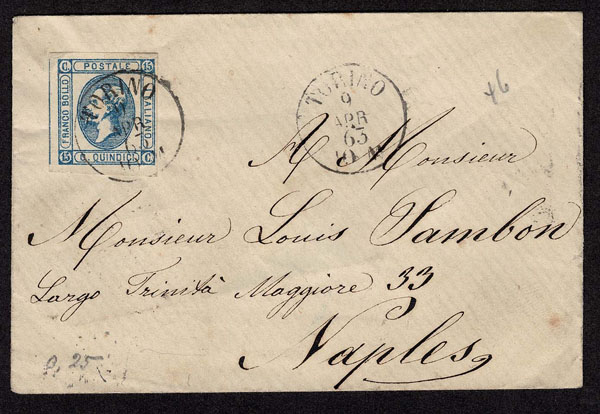 C. POSTALE 15
FRANCO BOLLO
ITALIANO
15 C. QUINDICI C.
TORINO
APR
TORINO
9
APR
63
10 M
46
A Monsieur
Monsieur Louis Sambon
Largo Trinità Maggiore 33
Naples
25